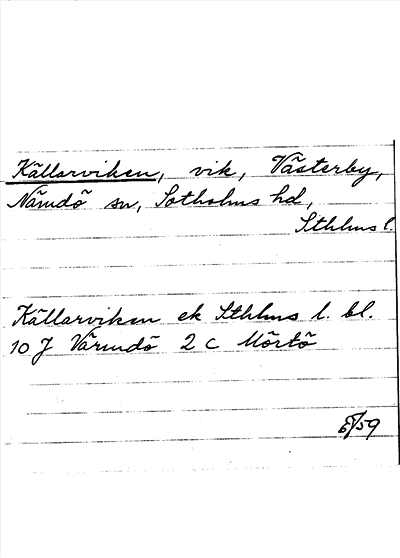 Källarviken, vik, Västerby,
Nämdö sn, Sotholms hd,
Sthlms l.
Källarviken ek Sthlms l. bl.
10 J Värmdö 2 c Mörtö
/59